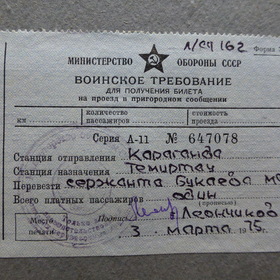 л/сч 162 Форма
МИНИСТЕРСТВО ОБОРОНЫ СССР
ВОИНСКОЕ ТРЕБОВАНИЕ
ДЛЯ ПОЛУЧЕНИЯ БИЛЕТА
на проезд в пригородном сообщении
количество стоимость
км пассажиров проезда
Серия А-11 № 647078
Станция отправления Караганда
Станция назначения Темиртау
Перевезти сержанта Букаева
Всего платных пассажиров один
(прописью)
Место Подпись
печати 3 марта